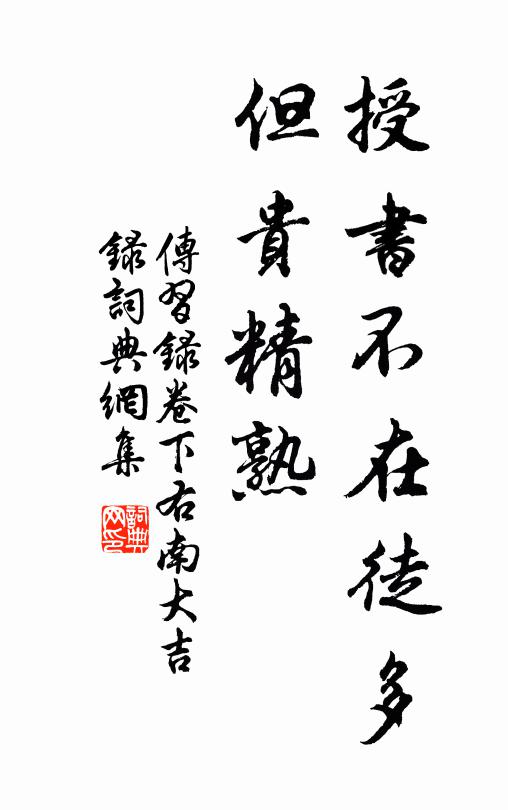 授書不在徒多
但貴精熟
傳習錄卷下右南大吉
錄詞典網集
詞典网印